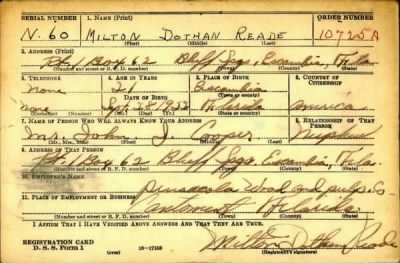 SERIAL NUMBER 1. NAME (Print) ORDER NUMBER
N-60 MILTON DOTHAN READE 10725A
(First) (Middle) (Last)
2. ADDRESS (Print)
Rt 1 Box 62 Bluff Spgs, Escambia, Fla.
(Number and street or R. F. D. number) (Town) (County) (State)
3. TELEPHONE 4. AGE IN YEARS 5. PLACE OF BIRTH 6. COUNTRY OF CITIZENSHIP
none 21 Escambia
DATE OF BIRTH
none Florida America
7. NAME OF PERSON WHO WILL ALWAYS KNOW YOUR ADDRESS 8. RELATIONSHIP OF THAT PERSON
Mr. John J. Cooper Nephew
9. ADDRESS OF THAT PERSON
Rt. 1 Box 62 Bluff Spgs, Escambia, Fla.
(Number and street or R. F. D. number) (Town) (County) (State)
10. EMPLOYER'S NAME
Pensacola Wood and pulp Co
11. PLACE OF EMPLOYMENT OR BUSINESS
Cantonment Florida
(Number and street or R. F. D. number) (Town) (County) (State)
I AFFIRM THAT I HAVE VERIFIED ABOVE ANSWERS AND THAT THEY ARE TRUE.
REGISTRATION CARD
D. S. S. Form 1 16-17105 Milton Dothan Reade